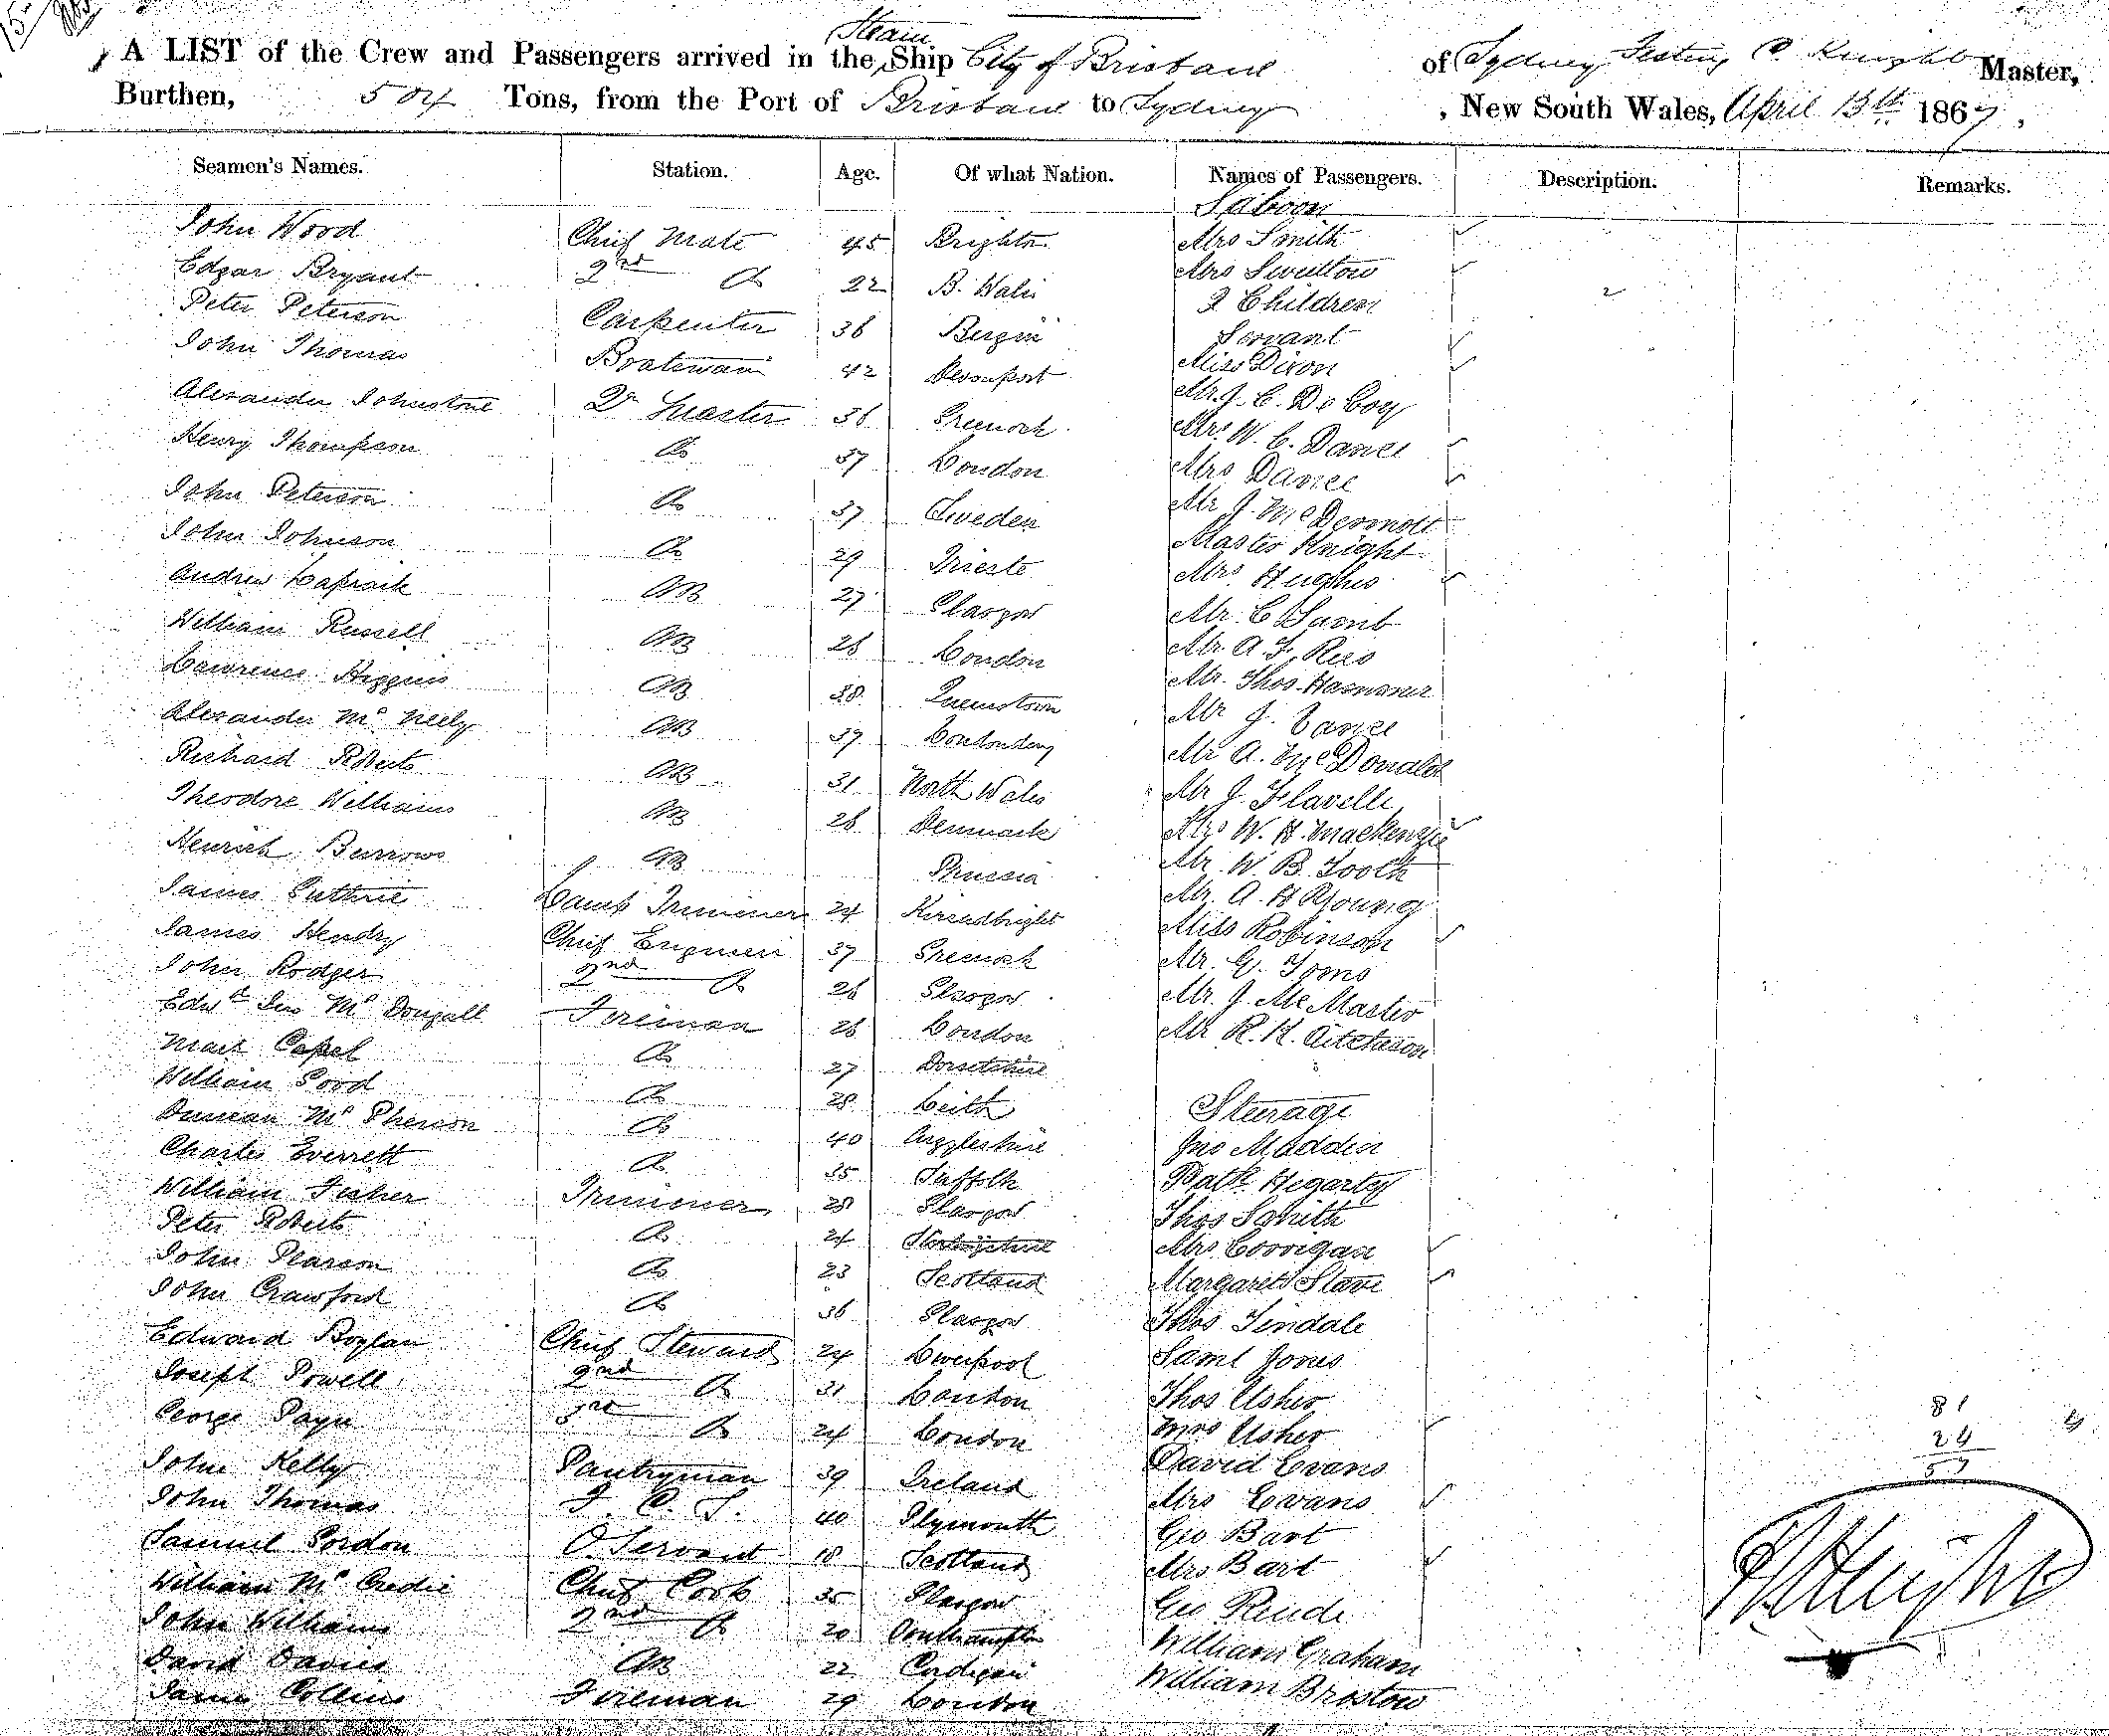 Steam
A LIST of the Crew and Passengers arrived in the Ship City of Brisbane of Sydney Knight Master,
Burthen, 504 Tons, from the Port of Brisbane to Sydney, New South Wales, April 13th 1867,
Seamen's Names. Station. Age. Of what Nation. Names of Passengers. Description. Remarks.
Saloon
John Wood Chief Mate 45 Brighton Mrs Smith
Edgar Bryant 2nd Do 22 Mrs
Peter Peterson Carpenter 36 Bergin 2 Children
Servant
John Thomas Boatswain 42 Devonport Miss Dixon
Alexander Johnstone Qr Master 36 Greenock Mr J. C. De Coy
Henry Thompson Do 37 London Mr W. C. Dance
Mrs Dance
John Peterson Do 37 Sweden Mr J. McDermott
John Johnson Do 29 Trieste Master Knight
Andrew Lapraik AB 27 Glasgow Mrs Hughes
William Russell AB 26 London Mr C Lamb
Mr A. F. Rees
Lawrence Higgins AB 38 Queenstown Mr Thos
Alexander McNeely AB 39 Londonderry Mr J. Vance
Richard Roberts AB 31 North Wales Mr A. McDonald
Theodore Williams AB 26 Denmark Mr J. Flavelle
Mrs W. H. Mackenzie
Henrich Burrows AB Prussia Mr W. B. Tooth
James Guthrie Lamp Trimmer 24 Mr A. H Young
James Hendry Chief Engineer 37 Greenock Miss Robinson
John Rodger 2nd Do 26 Glasgow Mr G. Toms
Edwd McDougall Fireman 26 London Mr J. McMaster
Mark Capel Do 27 Dorsetshire Mr R. H. Aitchison
William Good Do 28 Leith Steerage
Duncan McPherson Do 40 Argyleshire Jno Madden
Charles Everrett Do 35 Suffolk Patk Hegarty
William Fisher Trimmer 28 Glasgow Thos Smith
Peter Roberts Do 24 Mrs Corrigan
John Pearson Do 23 Scotland Margaret Slave
John Crawford Do 36 Glasgow Thos Tindale
Edward Boylan Chief Steward 24 Liverpool Saml Jones
Joseph Powell 2nd Do 31 London Thos Usher
81
George Payn 3rd Do 24 London Mrs Usher
24
David Evans
57
John Kelly Pantryman 39 Ireland Mrs Evans
John Thomas F. C. S. 40 Plymouth Geo Bart
Samuel Gordon O. Servant 18 Scotland Mrs Bart
William McCredie Chief Cook 35 Glasgow Geo
John Williams 2nd Do 20 Southampton William Graham
David Davies AB 22 Cardigan William Bristow
James Collins Fireman 29 London
Knight